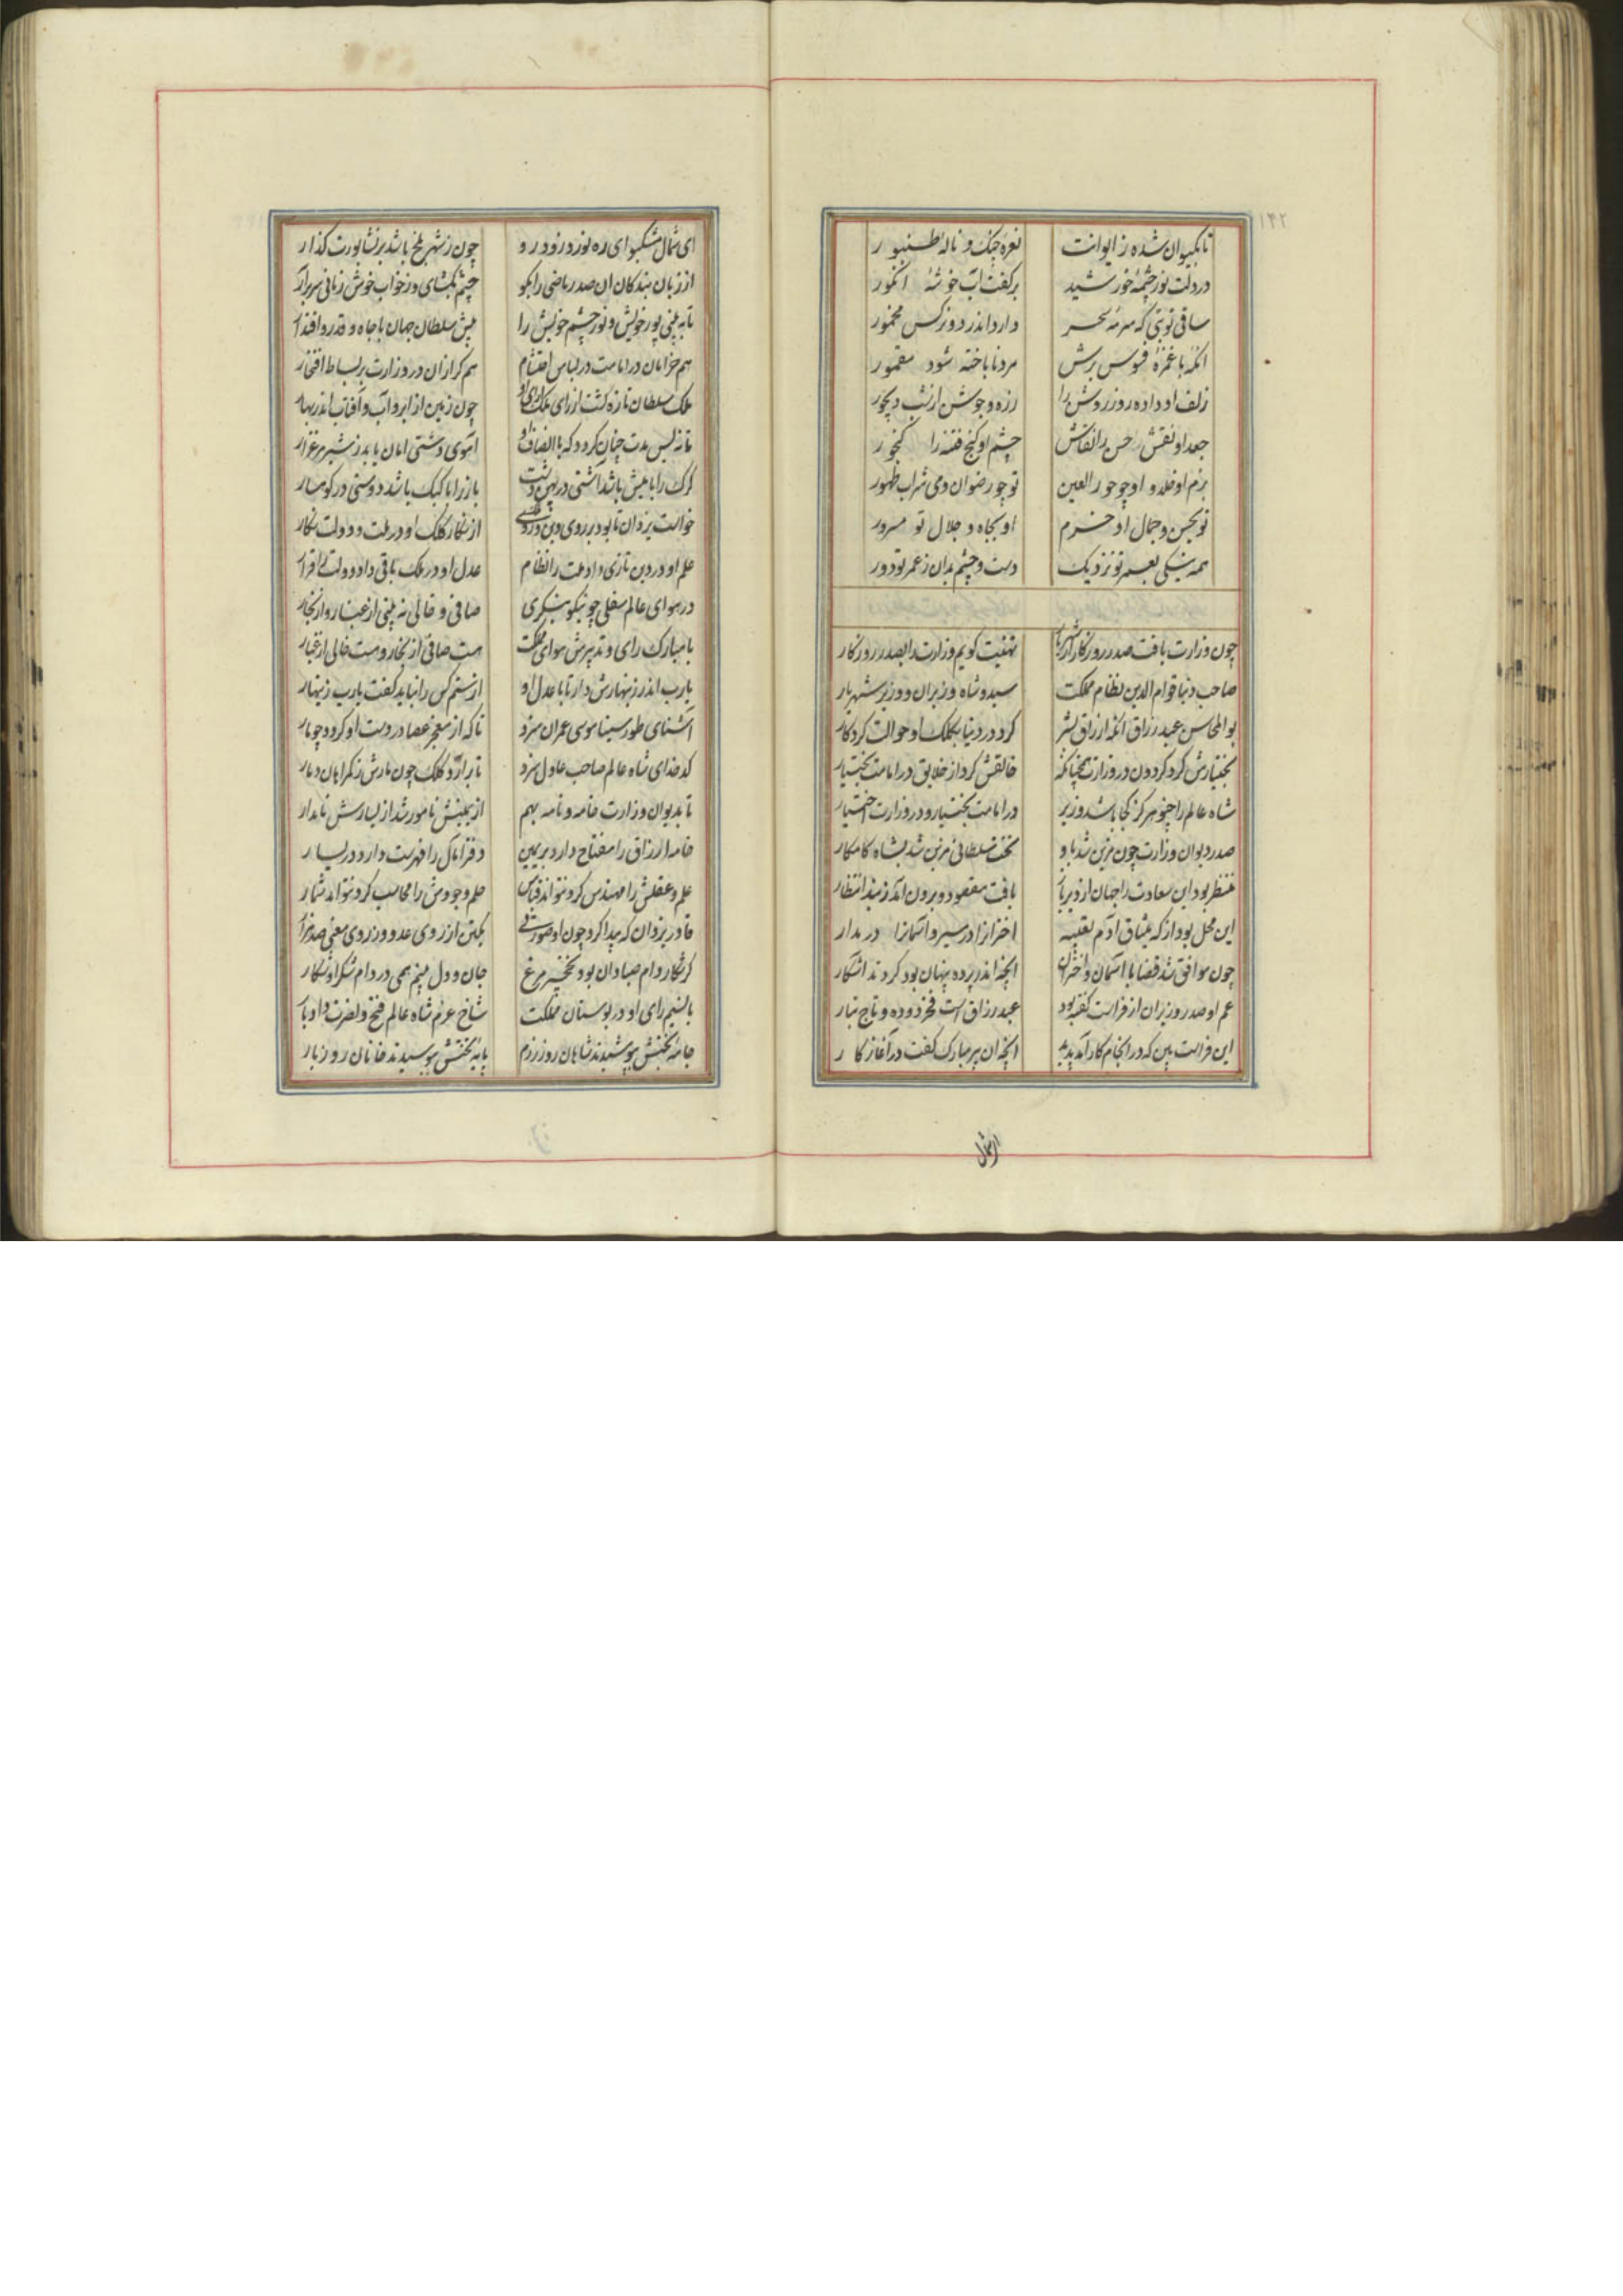 ۱۴۲
تا بکیوان شده ز ایوانت نعره چنک و ناله طنبور
در دلت نور چشمه خورشید بر کفت آب خوشه انکور
ساقی تو بتی که سرمه سحر دارد اندر دو نرکس مخمور
انکه با غمزه فسوس برش مرد نا باخته شود مقمور
زلف او داده روز روشن را زره و جوشن از شب دیجور
جعد او نقش حسن را نقاش چشم او کنج فتنه را کنجور
بزم او خلد و او چو حور العین تو چو رضوان و می شراب طهور
تو بحسن و جمال او خرم او بجاه و جلال تو مسرور
همه نیکی بعمر تو نزدیک دست و چشم بدان ز عمر تو دور
چون وزارت یافت صدر روزکار از شهریار تهنیت کویم وزارت را بصدر روزکار
صاحب دنیا قوام الدین نظام مملکت سید و شاه وزیران و وزیر شهریار
بو المحاسن عبد رزاق انکه ارزاق بشر کرد در دنیا بکلک او حوالت کردکار
بختیارش کرد کردون در وزارت همچنانکه خالقش کرد از خلایق در امامت بختیار
شاه عالم را چنو هرکز کجا باشد وزیر در امامت بختیار و در وزارت اختیار
صدر دیوان وزارت چون مزین شد باو تخت سلطانی مزین شد بشاه کامکار
منتظر بود این سعادت را جهان از دیر باز یافت مقصود و برون آمد ز بند انتظار
این محل بود از که میثاق آدم تعبیه اختر انرا در مسیر و آسمانرا در مدار
چون موافق شد قضا با آسمان و اختران انچه اندر پرده پنهان بود کردند آشکار
عم او صدر وزیران از فراست کفته بود عبد رزاق است فخر دوده و تاج تبار
این فراست بین که در انجام کار آمد پدید انچه ان پیر مبارک کفت در آغاز کار
ای شمال
ای شمال مشکبوای ره نورد زود رو چون ز شهر بلخ باشد بر نشابورت کذار
از زبان بندکان ان صدر ماضی را بکو چشم بکشای و ز خواب خوش زمانی سر برآر
تا به بینی پور خویش و نور چشم خویش را پیش سلطان جهان با جاه و قدر و اقتدار
هم خرامان در امامت در لباس احتشام هم کرازان در وزارت بر بساط افتخار
ملک سلطان تازه کشت از رای ملک آرای او چون زمین از ابر و آب و آفتاب اندر بهار
تا نه بس مدت چنان کردد که با انصاف او آهوی دشتی امان یابد ز شیر مرغزار
کرک را با میش باشد آشتی در پهن دشت باز را با کبک باشد دوستی در کوهسار
خواست یزدان تا بود بر روی دین و از نکار کلک او در ملت و دولت نکار
علم او در دین تازی داد ملت را نظام عدل او در ملک باقی داد دولت را قرار
در هوای عالم سفلی چو نیکو بنکری صافی و خالی نه بینی از غبار و از بخار
با مبارک رای و تدبیرش هوای مملکت هست صافی از بخار و هست خالی از غبار
یارب اندر زینهارش دار تا با عدل او از ستم کس را نباید کفت یارب زینهار
آشنای طور سینا موسی عمران سزد تا که از معجز عصا در دست او کردد چو مار
کدخدای شاه عالم صاحب عادل سزد تا برآرد کلک چون مارش ز کمراهان دمار
تا بدیوان وزارت خامه و نامه بهم از یمینش نامور شد از یسارش نامدار
خامه ارزاق را مفتاح دارد بر یمین دفتر آمال را فهرست دارد در یسار
علم و عقلش را مهندس کرد نتواند قیاس حلم و جودش را محاسب کرد نتواند شمار
قادر یزدان که پیدا کرد چون او صورتی یکتن از روی عدد وز روی معنی صد هزار
کر شکار دام صیادان بود نخجیر و مرغ جان و دل بینم همی در دام شکر او شکار
با نسیم رای او در بوستان مملکت شاخ عزم شاه عالم فتح و نصرت داد بار
جامه بختش بپوشیدند شاهان روز رزم پایه تختش ببوسیدند خانان روز بار